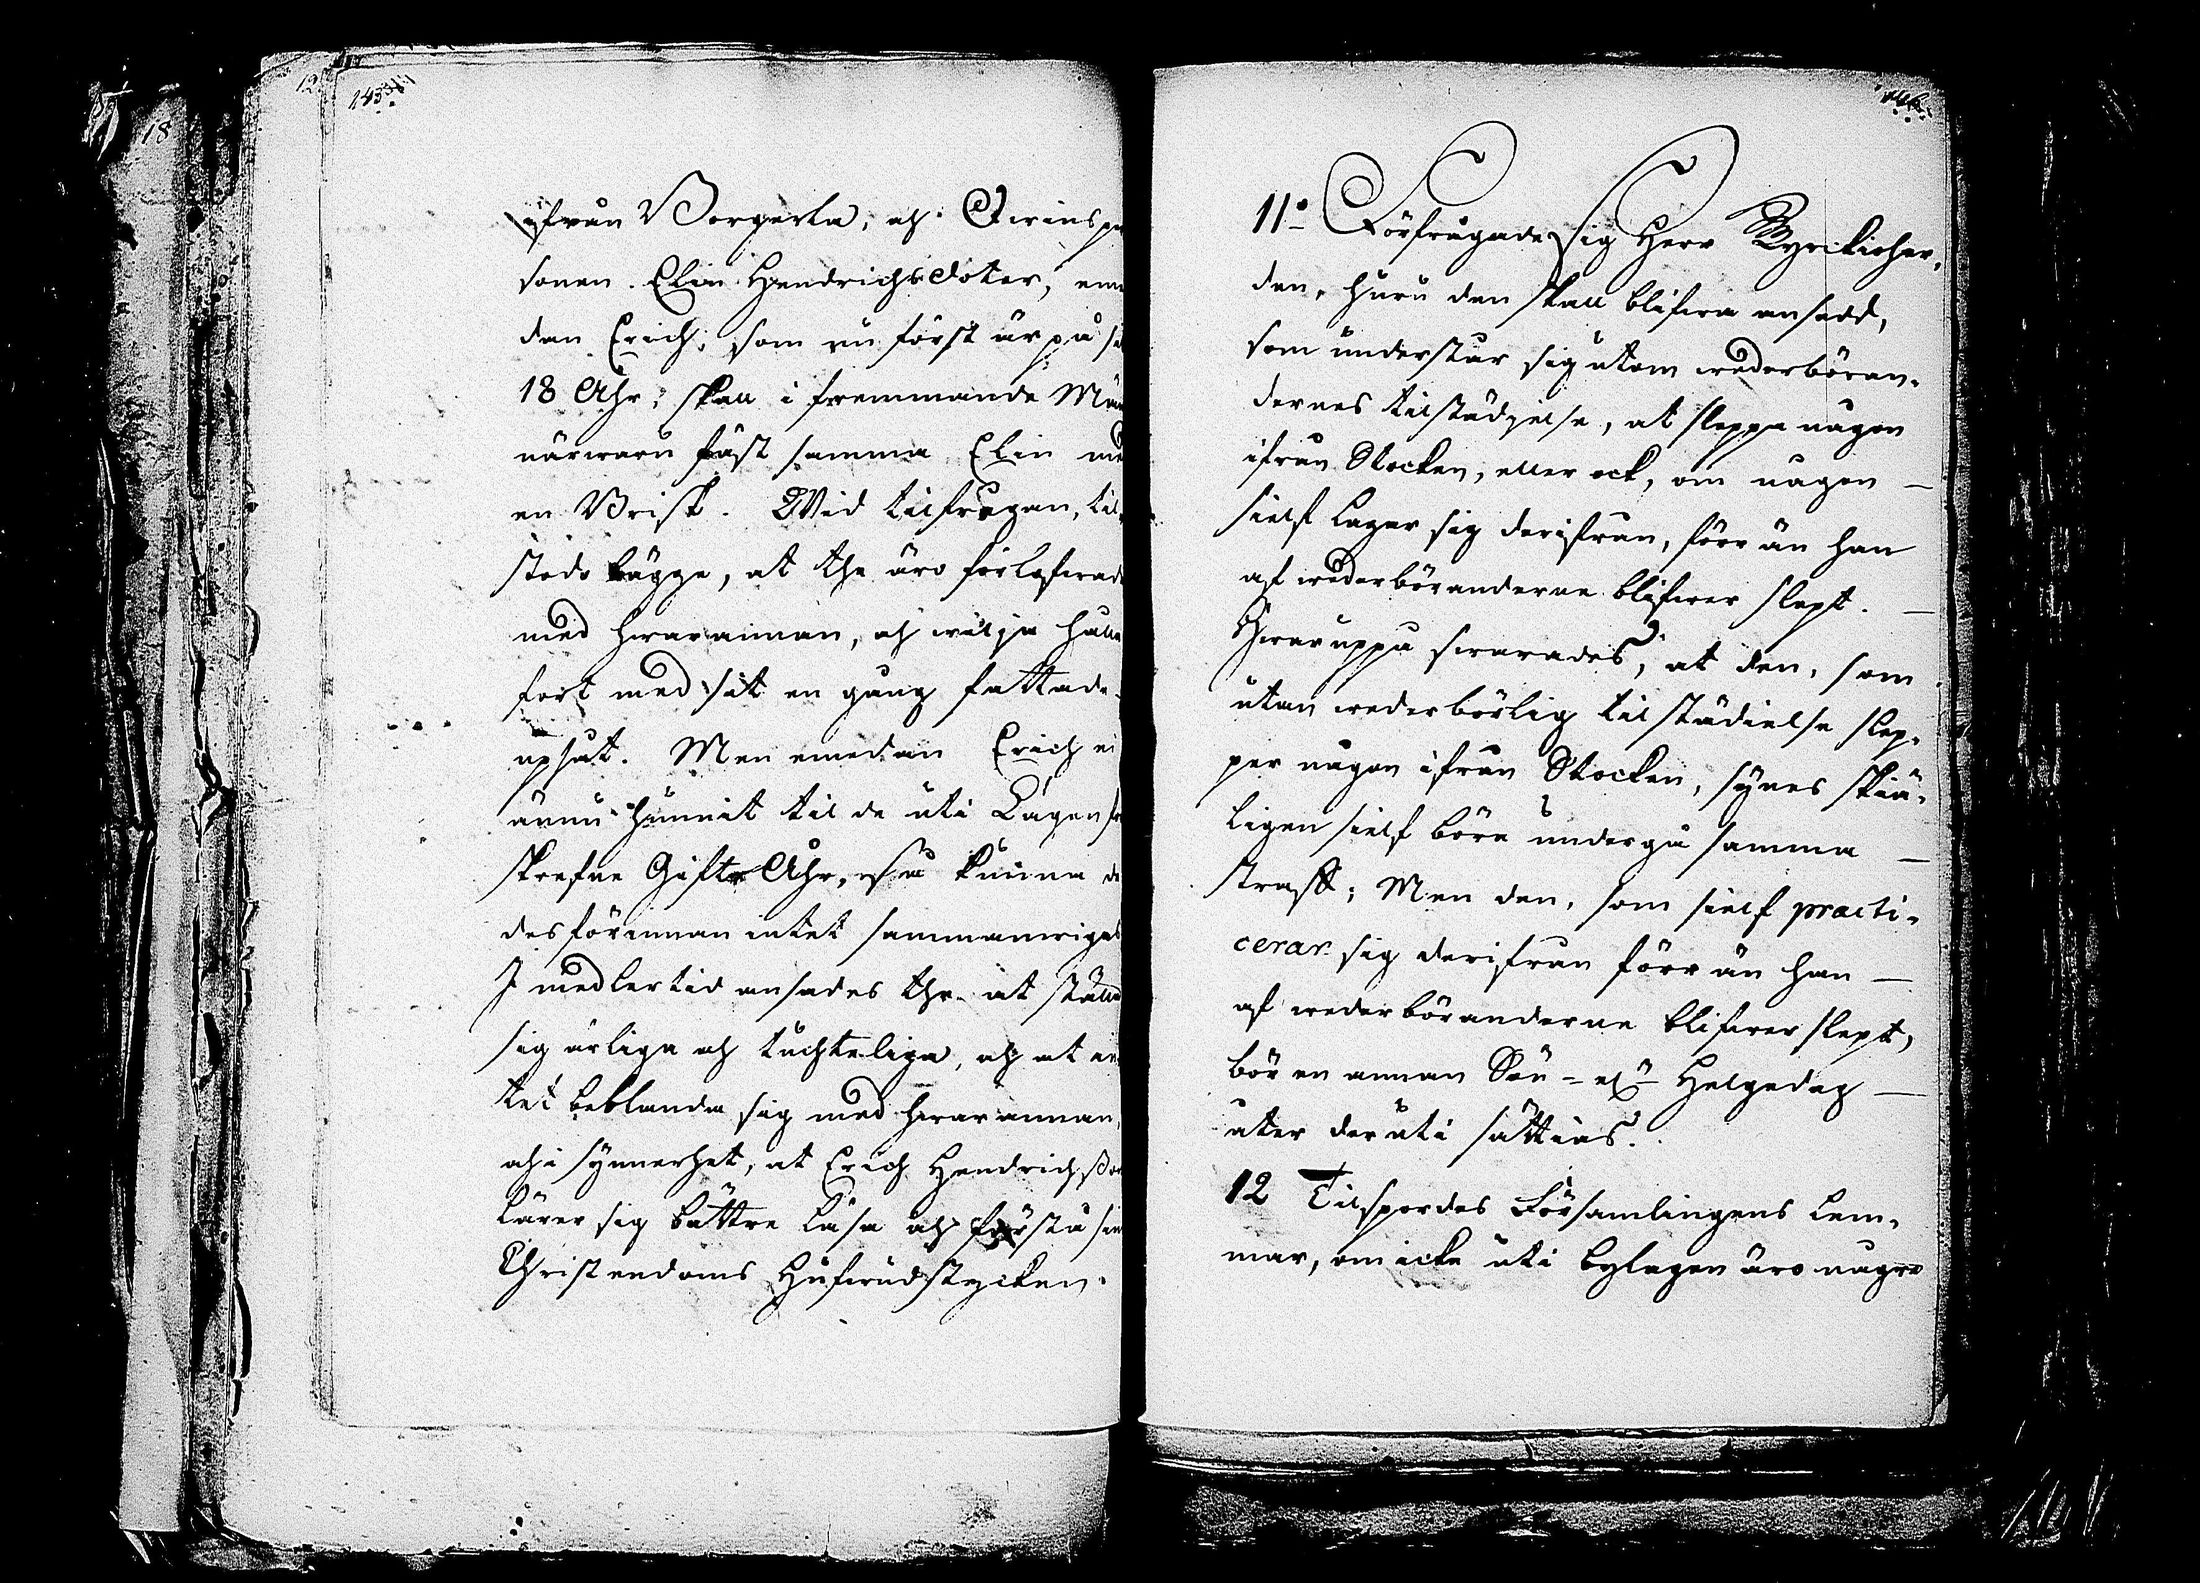 ifrån Borgerla, och Qwinsper
sonen Elin Hendrichsdoter, me
dan Erich, som nu först är på sit
18 Åhr, skall i fremmande Mäns
närwaru fäst samma Elin med
en Brisk. Wid tilfrågan, til
stodo bägge, at the äro förlofwade
med hwarannan, och wilja hålla
fort med sit en gång fattade
upsåt. Men emedan Erich ei
ännu hunnit til de uti Lagen för
skrefne Gifte Åhr, så kunna de
des förinnan intet sammanwigas
I medlertid ansades the at ställa
sig ärliga och tuchteliga, och at in
tet beblanda sig med hwarannan,
och i synnerhet, at Erich Hendrichsson
lärer sig bättre läsa och förstå sin
Christendoms Hufwudstycken.
11o Förfrågade sig Herr Kyrckioher,
den, huru den skall blifwa ansedd,
som understår sig utom wederböran,
dernes tilstädjelse, at sleppa någon
ifrån Stocken, eller ock, om någon
sielf lagar sig derifrån, förr än han
af wederböranderne blifwer slept.
Hwaruppå swarades, at den, som
utan wederbörlig tilstädielse slep,
per någon ifrån Stocken, synes skiä,
ligen sielf böra undergå samma
straff; Men den, som sielf practi-
cerar sig derifrån förr än han
af wederböranderne blifwer slept,
bör en annan Sön- elr Helgedag
åter der uti sättias.
12 Tilspordes Församlingens Lem,
mar, om icke uti bylagen äro några